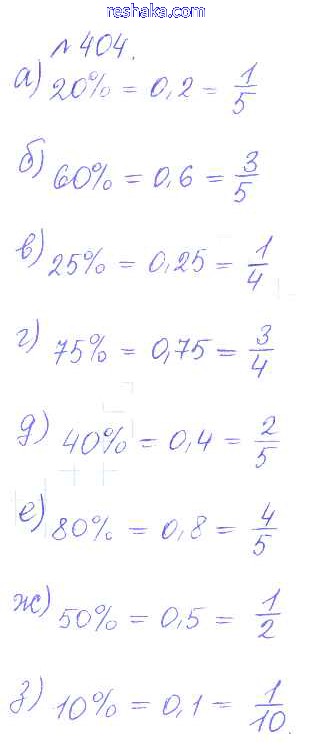 www.reshaka.com
№ 404.
а) 20% = 0,2 = 1/5
б) 60% = 0,6 = 3/5
в) 25% = 0,25 = 1/4
г) 75% = 0,75 = 3/4
д) 40% = 0,4 = 2/5
е) 80% = 0,8 = 4/5
ж) 50% = 0,5 = 1/2
з) 10% = 0,1 = 1/10.